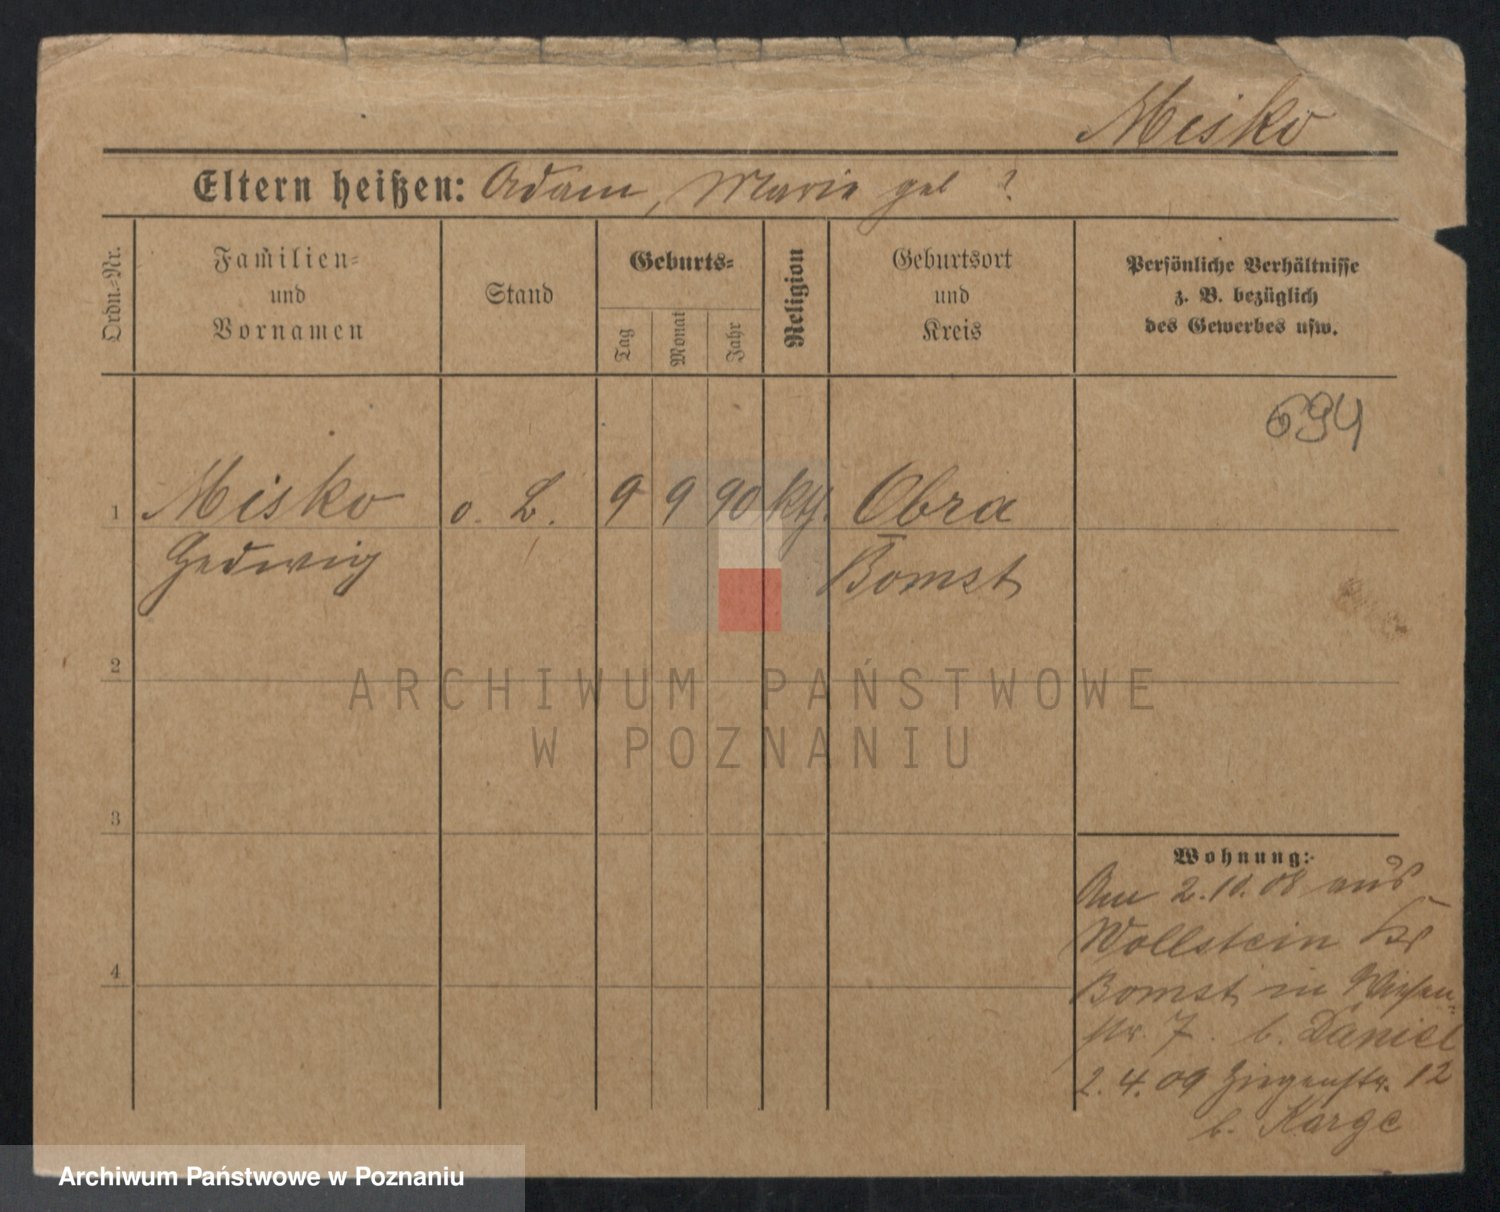 Misko
Eltern heißen: Adam, Marie geb ?
Ordn.-Nr.
Familien-
und
Vornamen
Stand
Geburts-
Tag
Monat
Jahr
Religion
Geburtsort
und
Kreis
Persönliche Verhältnisse
z. B. bezüglich
des Gewerbes usw.
694
1 Misko o. L. 9 9 90 kth. Obra
Hedwig Bomst
2
ARCHIWUM PAŃSTWOWE
W POZNANIU
3
Wohnung:
Am 2.10.08 aus
Wollstein Kr
4
Bomst in Wiesen-
str. 7. b. Daniel
2.4.09 Ziegenstr. 12
b. Karge
Archiwum Państwowe w Poznaniu